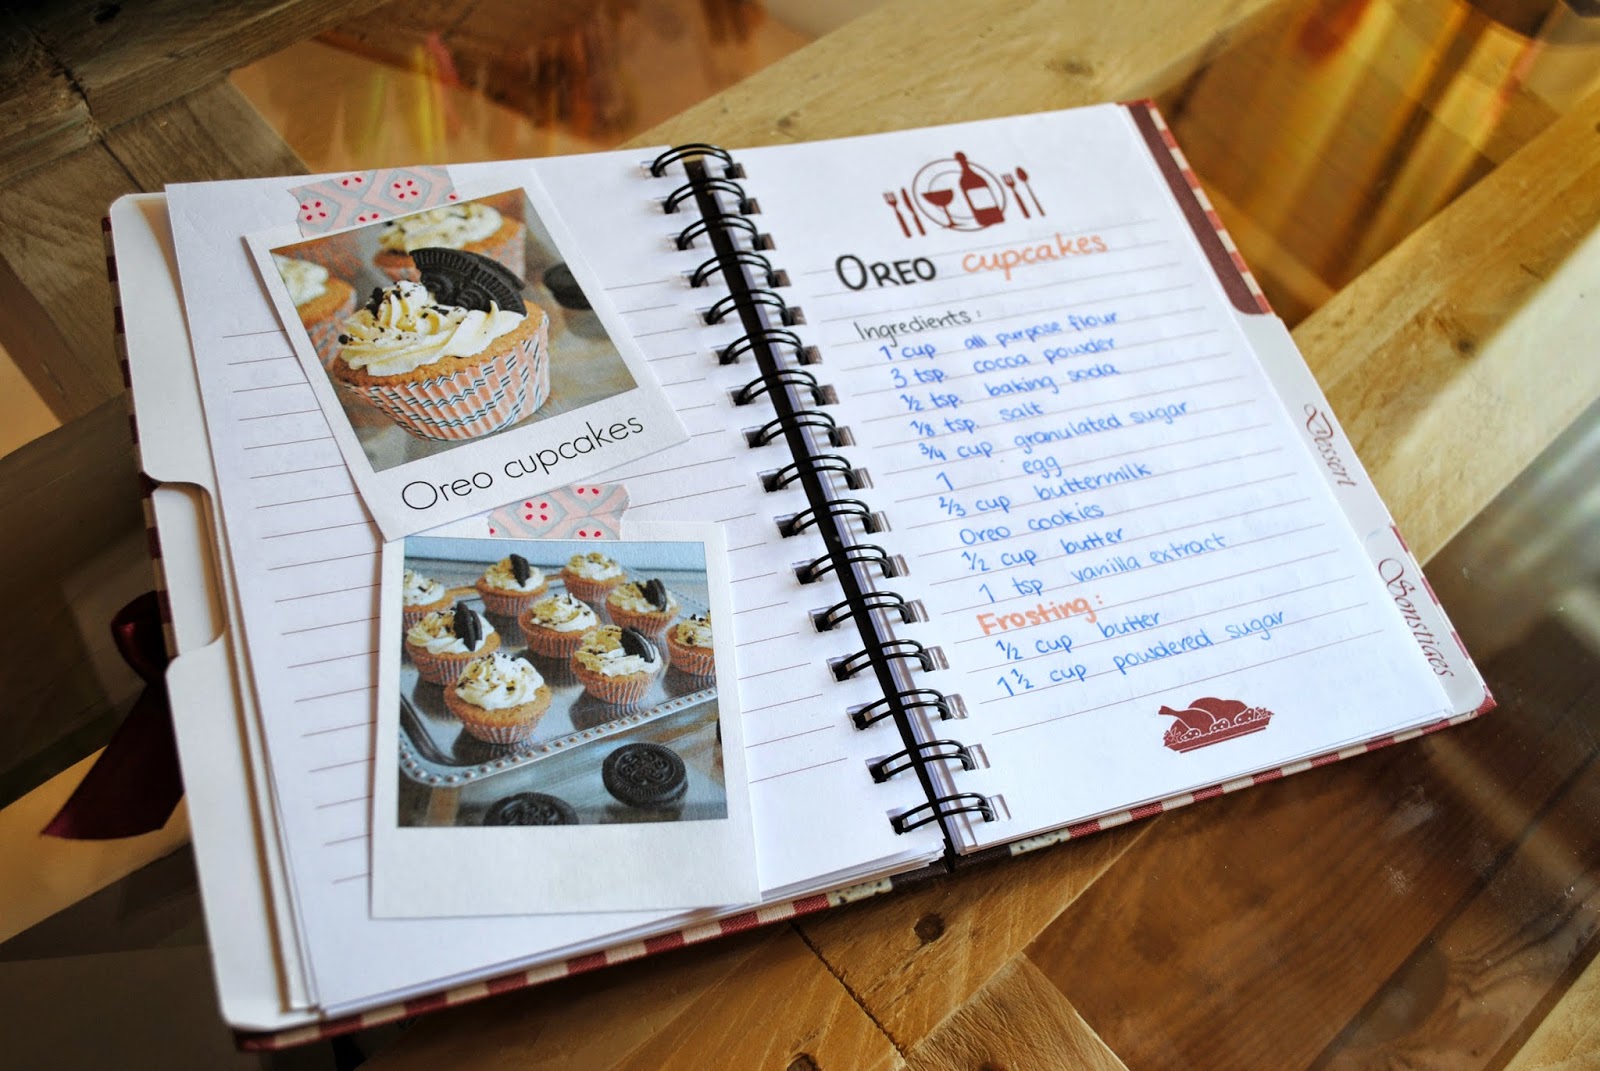 Oreo cupcakes
OREO cupcakes
Ingredients:
1 cup all purpose flour
3 tsp. cocoa powder
1/2 tsp. baking soda
1/8 tsp. salt
3/4 cup granulated sugar
1 egg
2/3 cup buttermilk
Oreo cookies
1/2 cup butter
1 tsp vanilla extract
Frosting:
1/2 cup butter
1 1/2 cup powdered sugar
Dessert
Sonstiges